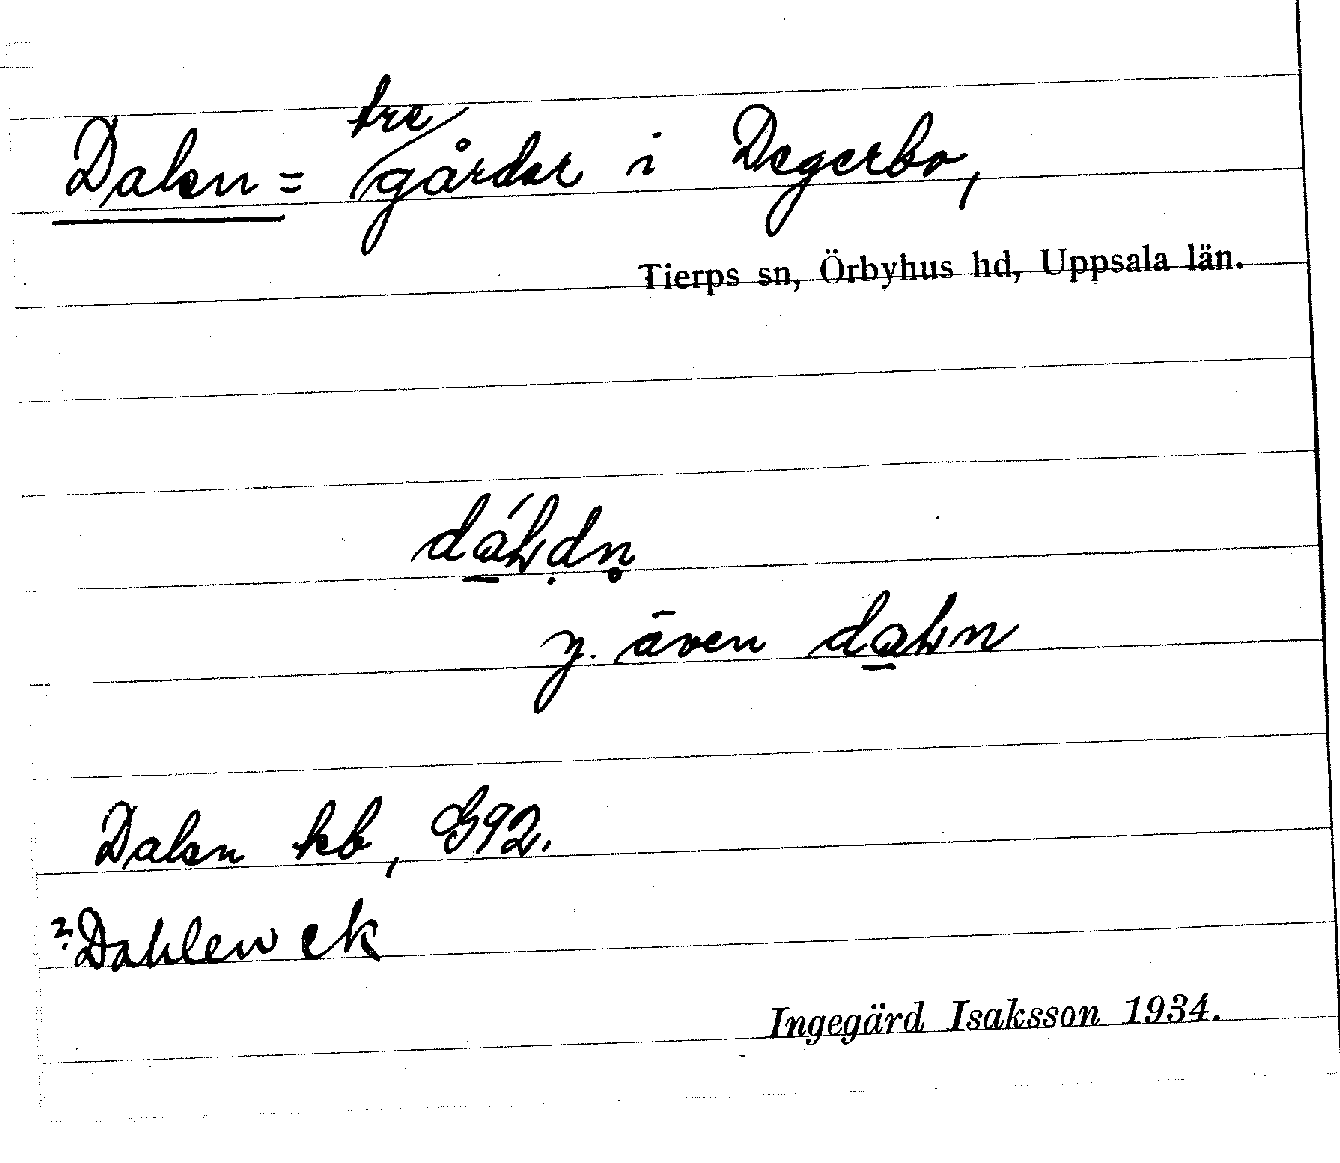 Dalen = tre gårdar i Degerbo,
Tierps sn, Örbyhus hd, Uppsala län.
y. även
Dalen kb, G92.
?Dahlen ek
Ingegärd Isaksson 1934.